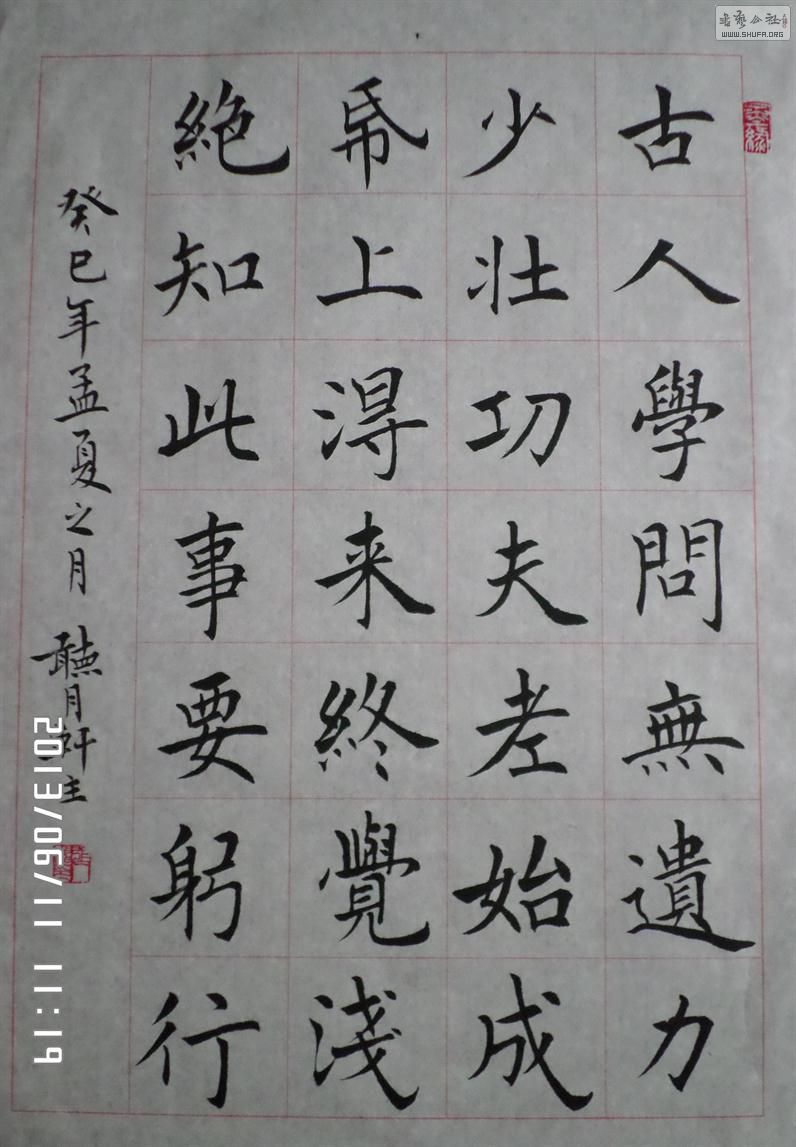 古人學問無遺力
少壯功夫老始成
帋上淂来終覺淺
絶知此事要躬行
癸巳年孟夏之月 聽月軒主
2013/06/11 11:19
书艺公社
WWW.SHUFA.ORG